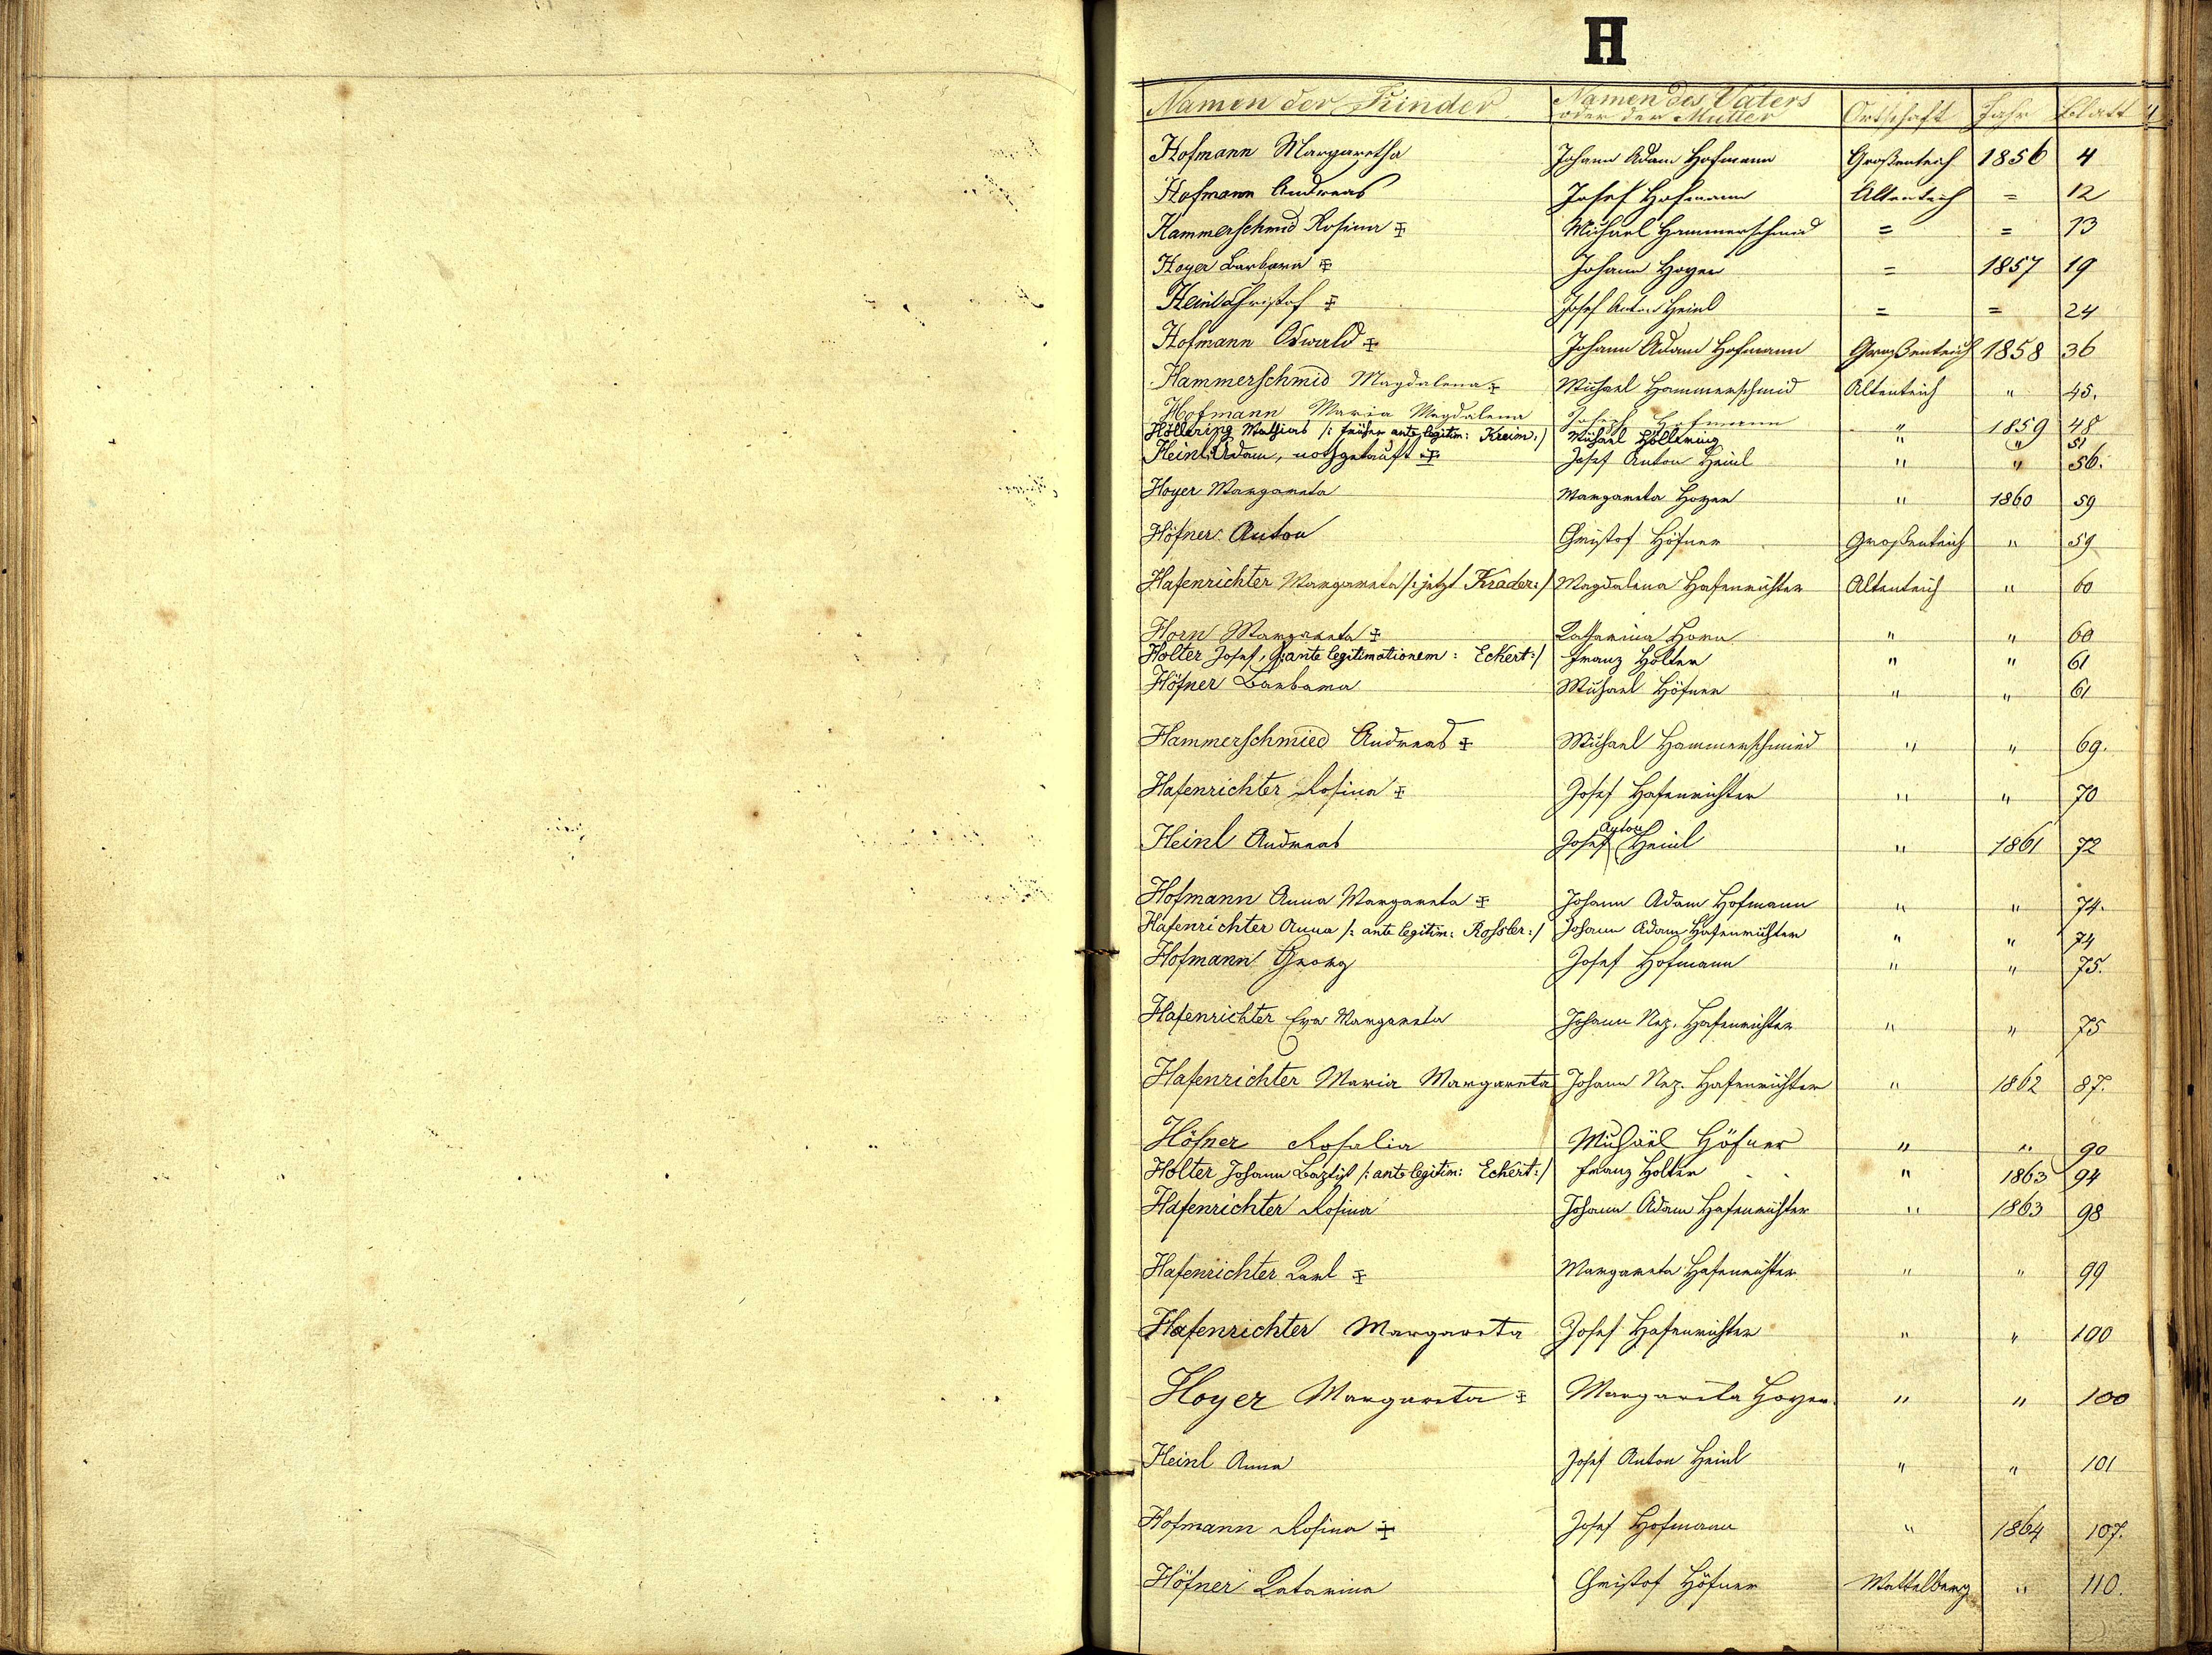 H
Namen der Kinder Namen des Vaters oder der Mutter Ortschaft Jahr Blatt
Hofmann Margaretha Johann Adam Hofmann Großenteich 1856 4
Hofmann Andreas Josef Hofmann Altenteich = 12
Hammerschmid Rosina ‡ Michael Hammerschmid = = 13
Hoyer Barbara ‡ Johann Hoyer = 1857 19
Heinl Christof ‡ Josef Anton Heinl = = 24
Hofmann Oswald ‡ Johann Adam Hofmann Großenteich 1858 36
Hammerschmid Magdalena ‡ Michael Hammerschmid Altenteich " 45.
Hofmann Maria Magdalena Joseph Hofmann " 1859 48
Höllering Mathias /: früher ante legitim: Kreim :/ Michael Höllering " " 51
Heinl Adam, nothgetauft ‡ Josef Anton Heinl " " 56.
Hoyer Margareta Margareta Hoyer " 1860 59
Höfner Anton Christof Höfner Großenteich " 59
Hafenrichter Margareta /: jetzt Krader :/ Magdalena Hafenrichter Altenteich " 60
Horn Margareta ‡ Katharina Horn " " 60
Holter Josef, /: ante legitimationem : Eckert :/ Franz Holter " " 61
Höfner Barbara Michael Höfner " " 61
Hammerschmied Andreas ‡ Michael Hammerschmied " " 69.
Hafenrichter Rosina ‡ Josef Hafenrichter " " 70
Heinl Andreas Josef Anton Heinl " 1861 72
Hofmann Anna Margareta ‡ Johann Adam Hofmann " " 74.
Hafenrichter Anna /: ante legitim: Rossler :/ Johann Adam Hafenrichter " " 74
Hofmann Georg Josef Hofmann " " 75.
Hafenrichter Eva Margareta Johann Nep. Hafenrichter " " 75
Hafenrichter Maria Margareta Johann Nep. Hafenrichter " 1862 87.
Höfner Rosalia Michael Höfner " " 90
Holter Johann Baptist /: ante legitim: Eckert :/ Franz Holter " 1863 94
Hafenrichter Rosina Johann Adam Hafenrichter " 1863 98
Hafenrichter Karl ‡ Margareta Hafenrichter " " 99
Hafenrichter Margareta Josef Hafenrichter " " 100
Hoyer Margareta ‡ Margareta Hoyer " " 100
Heinl Anna Josef Anton Heinl " " 101
Hofmann Rosina ‡ Josef Hofmann " 1864 107.
Höfner Katarina Christof Höfner Mattelberg " 110.